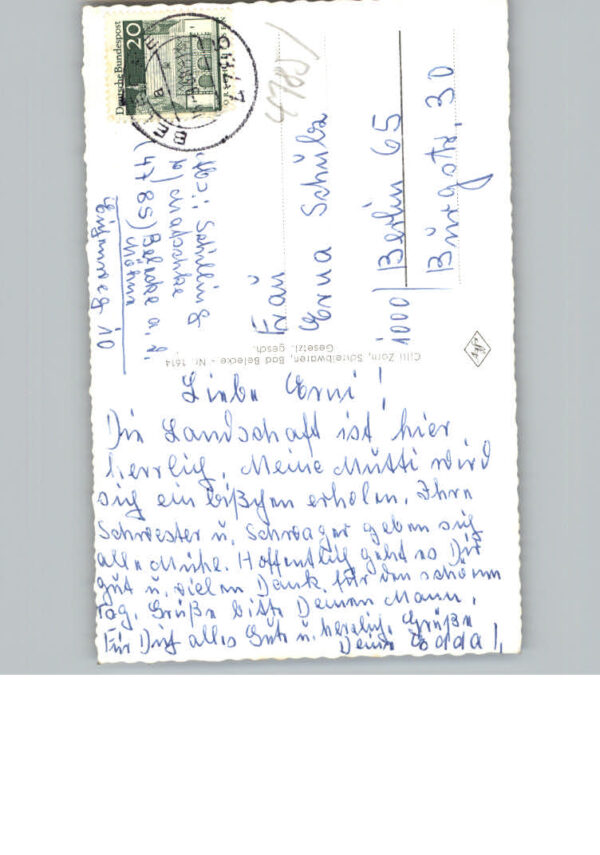 Liebe Erni!
Die Landschaft ist hier
herrlich. Meine Mutti wird
sich ein bißchen erholen. Ihre
Schwester u. Schwager geben sich
alle Mühe. Hoffentlich geht es Dir
gut u. vielen Dank für den schönen
Tag. Grüße bitte Deinen Mann.
Für Dich alles Gute u. herzlich. Grüße
Deine Edda!
Abs.: Schilling
b/
(4785) Belecke a. d.
Möhne
10
Deutsche Bundespost
20
4785/
Frau
Erna Schulz
1000/ Berlin 65
Burgstr. 30
Cilli Zorn, Schreibwaren, Bad Belecke - Nr. 1614
Gesetzl. gesch.